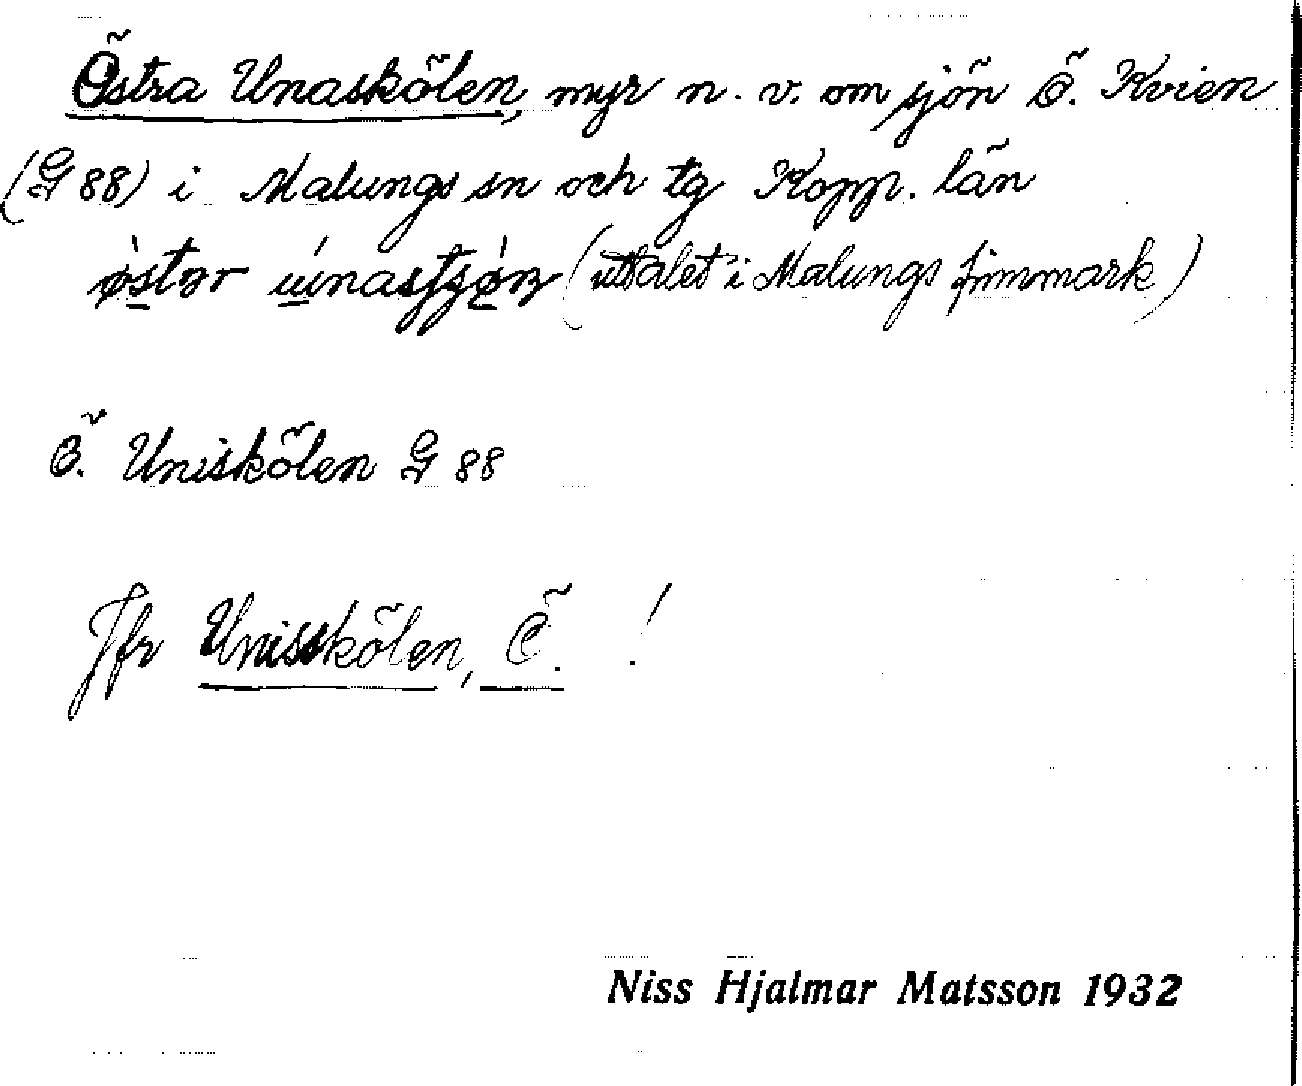 Östra Unaskölen, myr n. v. om sjön Ö. Kvien
(G 88) i Malungs sn och tg Kopp. län
(uttalet i Malungs finnmark)
Ö. Uniskölen G 88
Jfr Unisskölen, Ö. !
Niss Hjalmar Matsson 1932